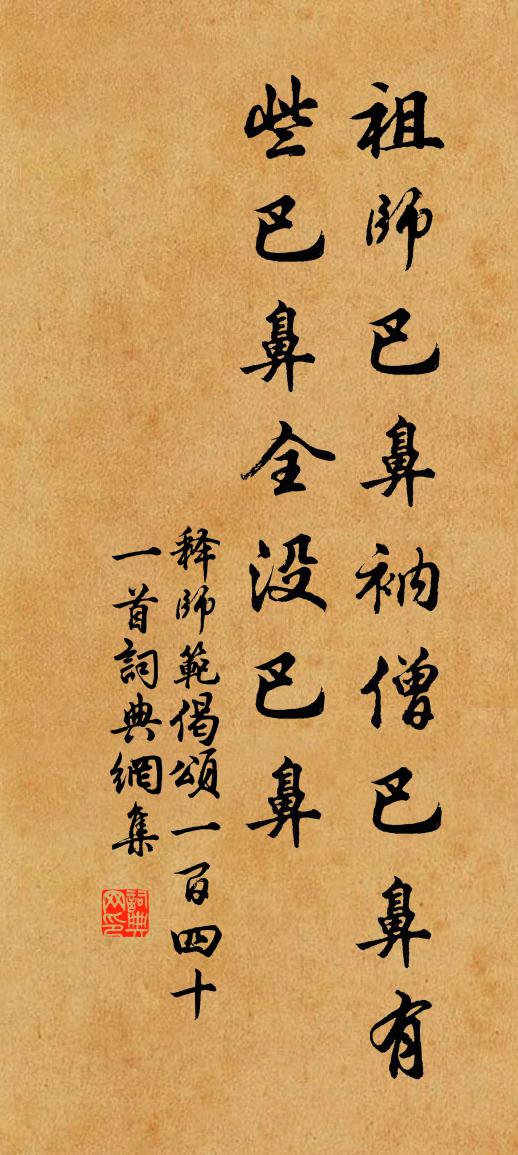 祖師巴鼻衲僧巴鼻有
些巴鼻全没巴鼻
释師範偈頌一百四十
一首詞典網集
詞典
网印